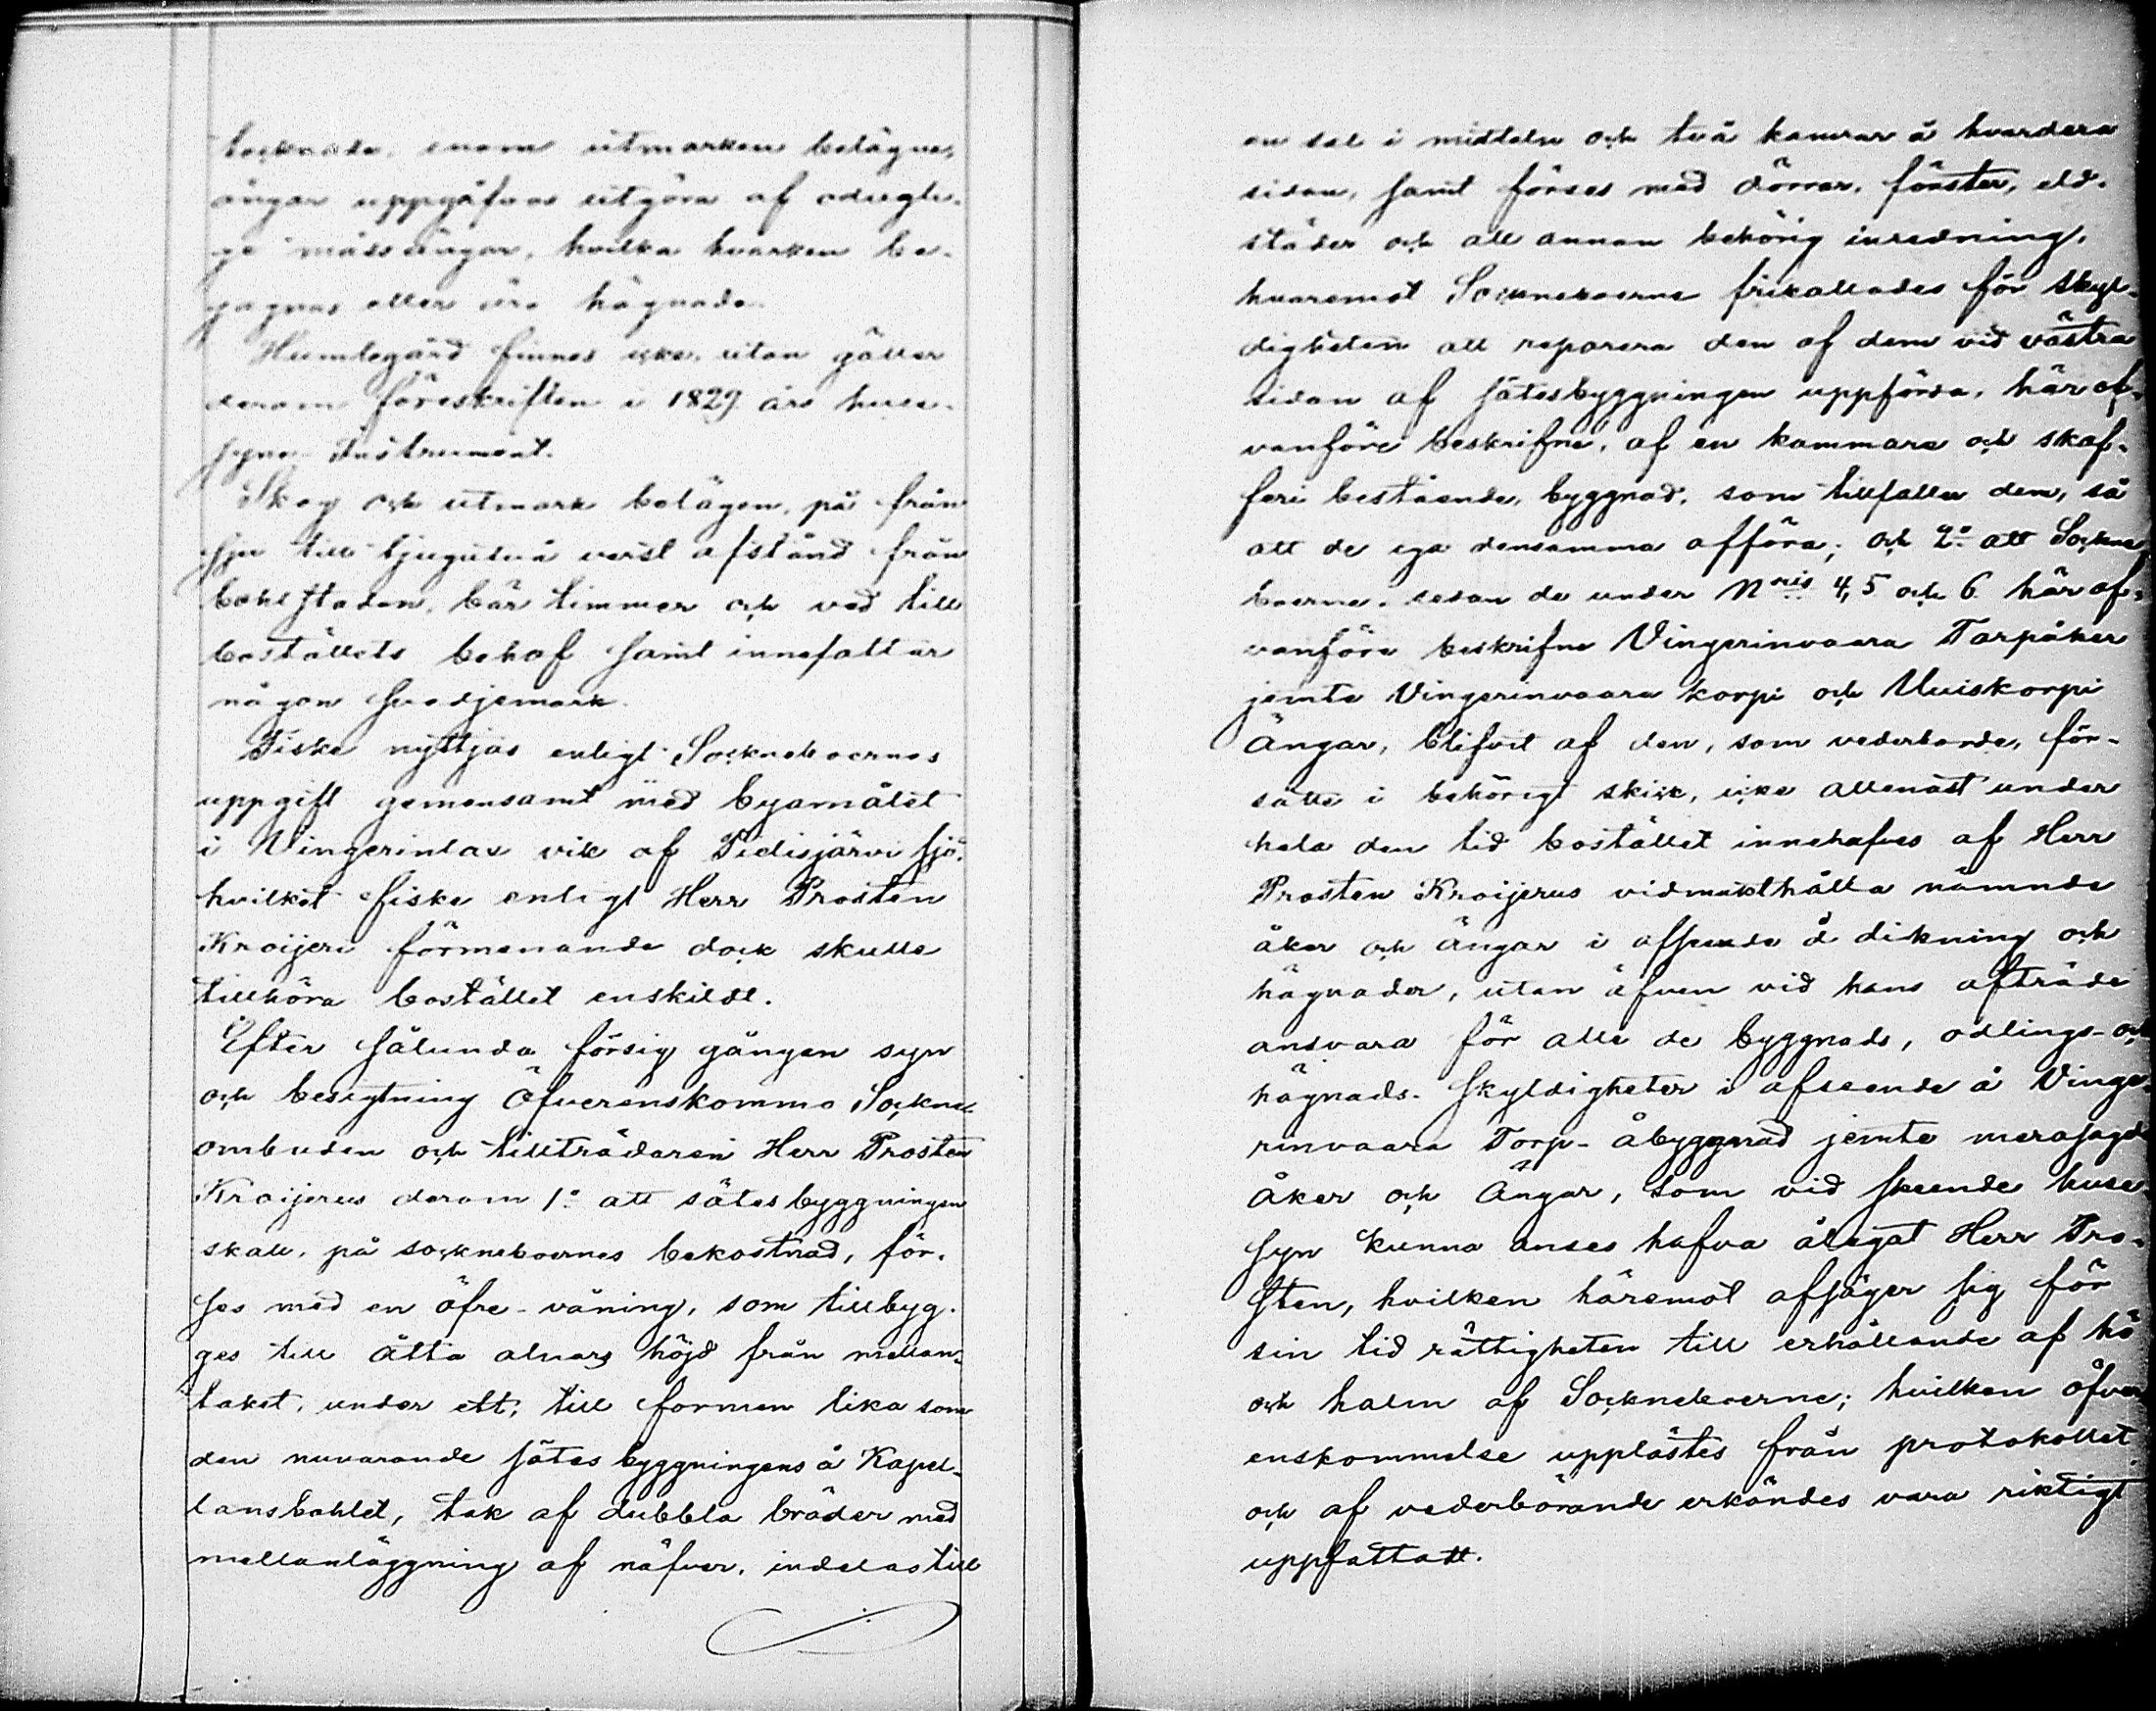 inom utmarken belägne,
ängar uppgåfvos utgöra af odugli-
ge mässängar, hvilka hvarken be-
gagnas eller äro hägnade.
Humlegård finnes icke, utan gäller
derom föreskriften i 1829 års huse-
syns Instrument.
Skog och utmark belägen, på från
till tjugutvå verst afstånd från
bohlstaden, bär timmer och ved till
boställets behof samt innefattar
någon svedjemark.
Fiske nyttjas enligt Sockneboernes
uppgift gemensamt med byamålet
i Vingerinlax vik af Tidisjärvi sjö,
hvilket fiske enligt Herr Prosten
Kroijeri förmenande dock skulle
tillhöra bostället enskildt.
Efter sålunda försig gången syn
och besigtning Öfverenskommo Sockne-
ombuden och tillträdaren Herr Prosten
Kroijerus derom 1º att sätesbyggningen
skall, på sockneboernes bekostnad, för-
ses med en öfre-våning, som tillbyg-
ges till åtta alnars höjd från mellan-
taket, under ett, till formen lika som
den nuvarande sätes byggningens å Kapel-
lansbohlet, tak af dubbla bräder med
mellanläggning af näfver, indelas till
en sal i midteln och två kamrar å hvardera
sidan, samt förses med dörrar, fönster, eld-
städer och all annan behörig inredning,
hvaremot Sockneboerne frikallades för skyl-
digheten att reparera den af dem vid västra
sidan af sätesbyggningen uppförda, här of-
vanföre beskrifne, af en kammare och skaf-
feri bestående, byggnad, som tillfaller dem, så
att de ega densamma afföra; och 2º att Sockne
boerne, sedan de under Nris 4, 5 och 6 här of-
vanföre beskrifne Vingerinvaara Torpåker
jemte Vingerinvaara korpi och Uuiskorpi
Ängar, blifvit af den, som vederborde, för-
satte i behörigt skick, icke allenast under
hela den tid bostället innehafves af Herr
Prosten Kroijerus vidmakthålla nämnde
åker och ängar i afseende å dikning och
hägnader, utan äfven vid hans afträde
ansvara för alla de byggnads, odlings- och
hägnads- skyldigheter i afseende å Vinge-
rinvaara Torp- åbyggnad jemte merasagde
åker och Ängar, som vid skeende huse-
syn kunna anses hafva ålegat Herr Pro-
sten, hvilken häremot afsäger sig för
sin tid rättigheten till erhållande af hö
och halm af Sockneboerne; hvilken öfver
enskommelse upplästes från protokollet
och af vederbörande erkändes vara riktigt
uppfattadt.